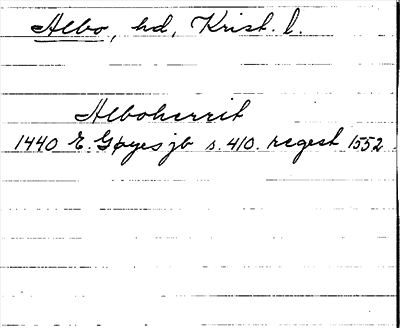 Albo, hd, Krist. l.
Alboherrit
1440 E. Gøyes jb s. 410. regest 1552.